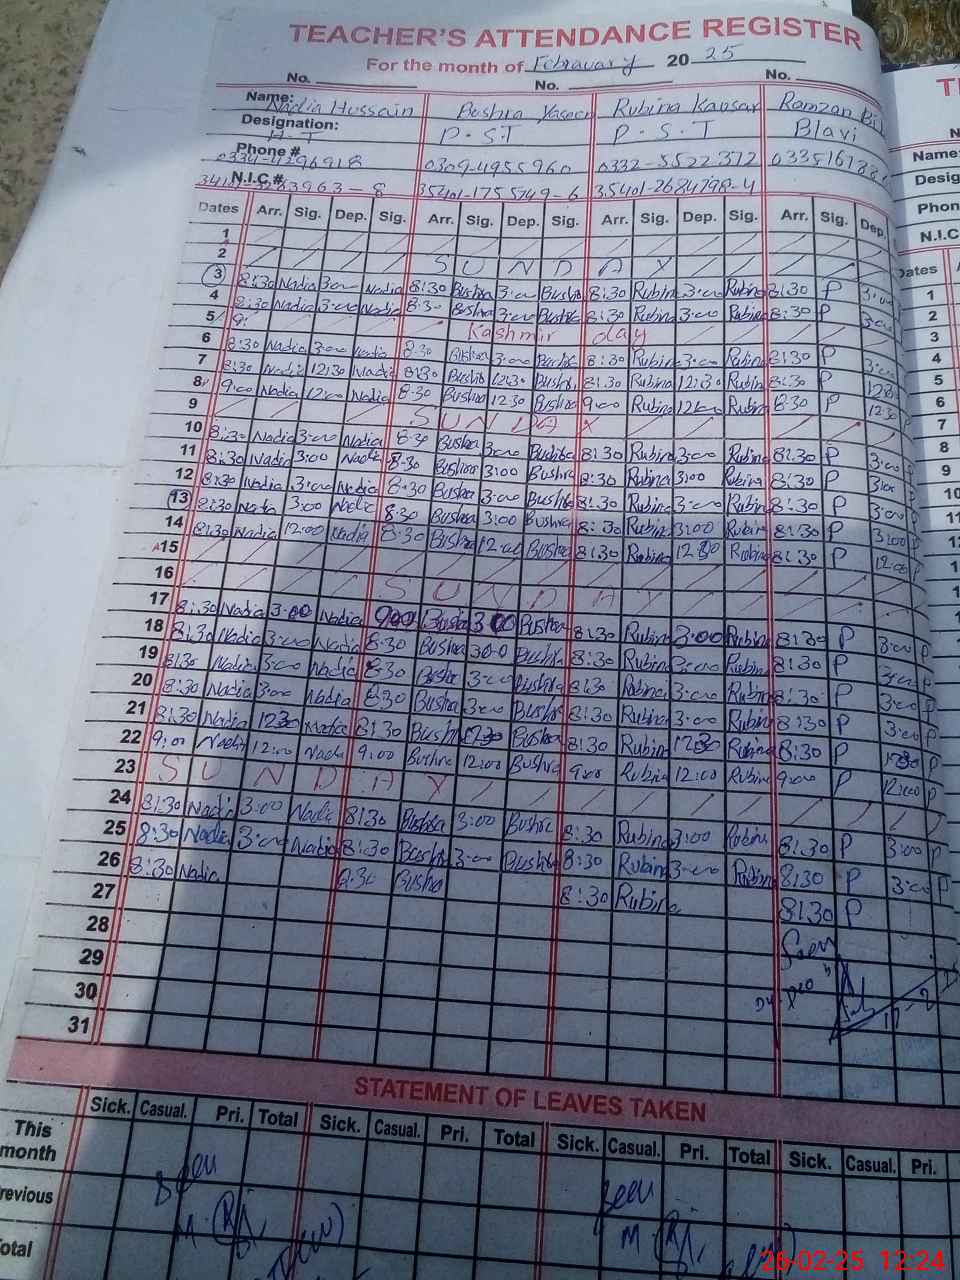 TEACHER'S ATTENDANCE REGISTER
For the month of February 20 25
No. No. No.
Name: Nadia Hussain Bushra Yaseen Rubina Kausar Ramzan Bi
Designation: H.T P.S.T P.S.T Blavi
Phone # 0334-4396918 0309-4955960 0332-5522372
N.I.C.# 35401-1755749-6 35401-2684798-4
Dates Arr. Sig. Dep. Sig. Arr. Sig. Dep. Sig. Arr. Sig. Dep. Sig. Arr. Sig. Dep.
1
2 SUNDAY
3 8:30 Nadia 3:00 Nadia 8:30 Bushra 3:00 Bushra 8:30 Rubina 3:00 Rubina 8:30 P 3:00
4 8:30 Nadia 3:00 Nadia 8:30 Bushra 3:00 Bushra 8:30 Rubina 3:00 Rubina 8:30 P 3:00
5 Kashmir day
6 8:30 Nadia 3:00 Nadia 8:30 Bushra 3:00 Bushra 8:30 Rubina 3:00 Rubina 8:30 P 3:00
7 8:30 Nadia 12:30 Nadia 8:30 Bushra 12:30 Bushra 8:30 Rubina 12:30 Rubina 8:30 P 12:30
8 9:00 Nadia 12:00 Nadia 8:30 Bushra 12:30 Bushra 9:00 Rubina 12:00 Rubina 8:30 P 12:30
9 SUNDAY
10 8:30 Nadia 3:00 Nadia 8:30 Bushra 3:00 Bushra 8:30 Rubina 3:00 Rubina 8:30 P 3:00
11 8:30 Nadia 3:00 Nadia 8:30 Bushra 3:00 Bushra 8:30 Rubina 3:00 Rubina 8:30 P 3:00
12 8:30 Nadia 3:00 Nadia 8:30 Bushra 3:00 Bushra 8:30 Rubina 3:00 Rubina 8:30 P 3:00
13 8:30 Nadia 3:00 Nadia 8:30 Bushra 3:00 Bushra 8:30 Rubina 3:00 Rubina 8:30 P 3:00 P
14 8:30 Nadia 12:00 Nadia 8:30 Bushra 12:00 Bushra 8:30 Rubina 12:00 Rubina 8:30 P 12:00 P
15
16 SUNDAY
17 8:30 Nadia 3:00 Nadia 900 Bushra 3:00 Bushra 8:30 Rubina 3:00 Rubina 8:30 P 3:00 P
18 8:30 Nadia 3:00 Nadia 8:30 Bushra 300 Bushra 8:30 Rubina 3:00 Rubina 8:30 P 3:00 P
19 8:30 Nadia 3:00 Nadia 8:30 Bushra 3:00 Bushra 8:30 Rubina 3:00 Rubina 8:30 P 3:00 P
20 8:30 Nadia 3:00 Nadia 8:30 Bushra 3:00 Bushra 8:30 Rubina 3:00 Rubina 8:30 P 3:00 P
21 8:30 Nadia 12:30 Nadia 8:30 Bushra 12:30 Bushra 8:30 Rubina 12:30 Rubina 8:30 P 12:30 P
22 9:00 Nadia 12:00 Nadia 9:00 Bushra 12:00 Bushra 9:00 Rubina 12:00 Rubina 9:00 P 12:00 P
23 SUNDAY
24 8:30 Nadia 3:00 Nadia 8:30 Bushra 3:00 Bushra 8:30 Rubina 3:00 Rubina 8:30 P 3:00 P
25 8:30 Nadia 3:00 Nadia 8:30 Bushra 3:00 Bushra 8:30 Rubina 3:00 Rubina 8:30 P 3:00 P
26 8:30 Nadia 8:30 Bushra 8:30 Rubina 8:30 P
27
28 Seen
29
30
31
STATEMENT OF LEAVES TAKEN
Sick. Casual. Pri. Total Sick. Casual. Pri. Total Sick. Casual. Pri. Total Sick. Casual. Pri.
This month
Previous Seen Seen
Total
26-02-25 12:24